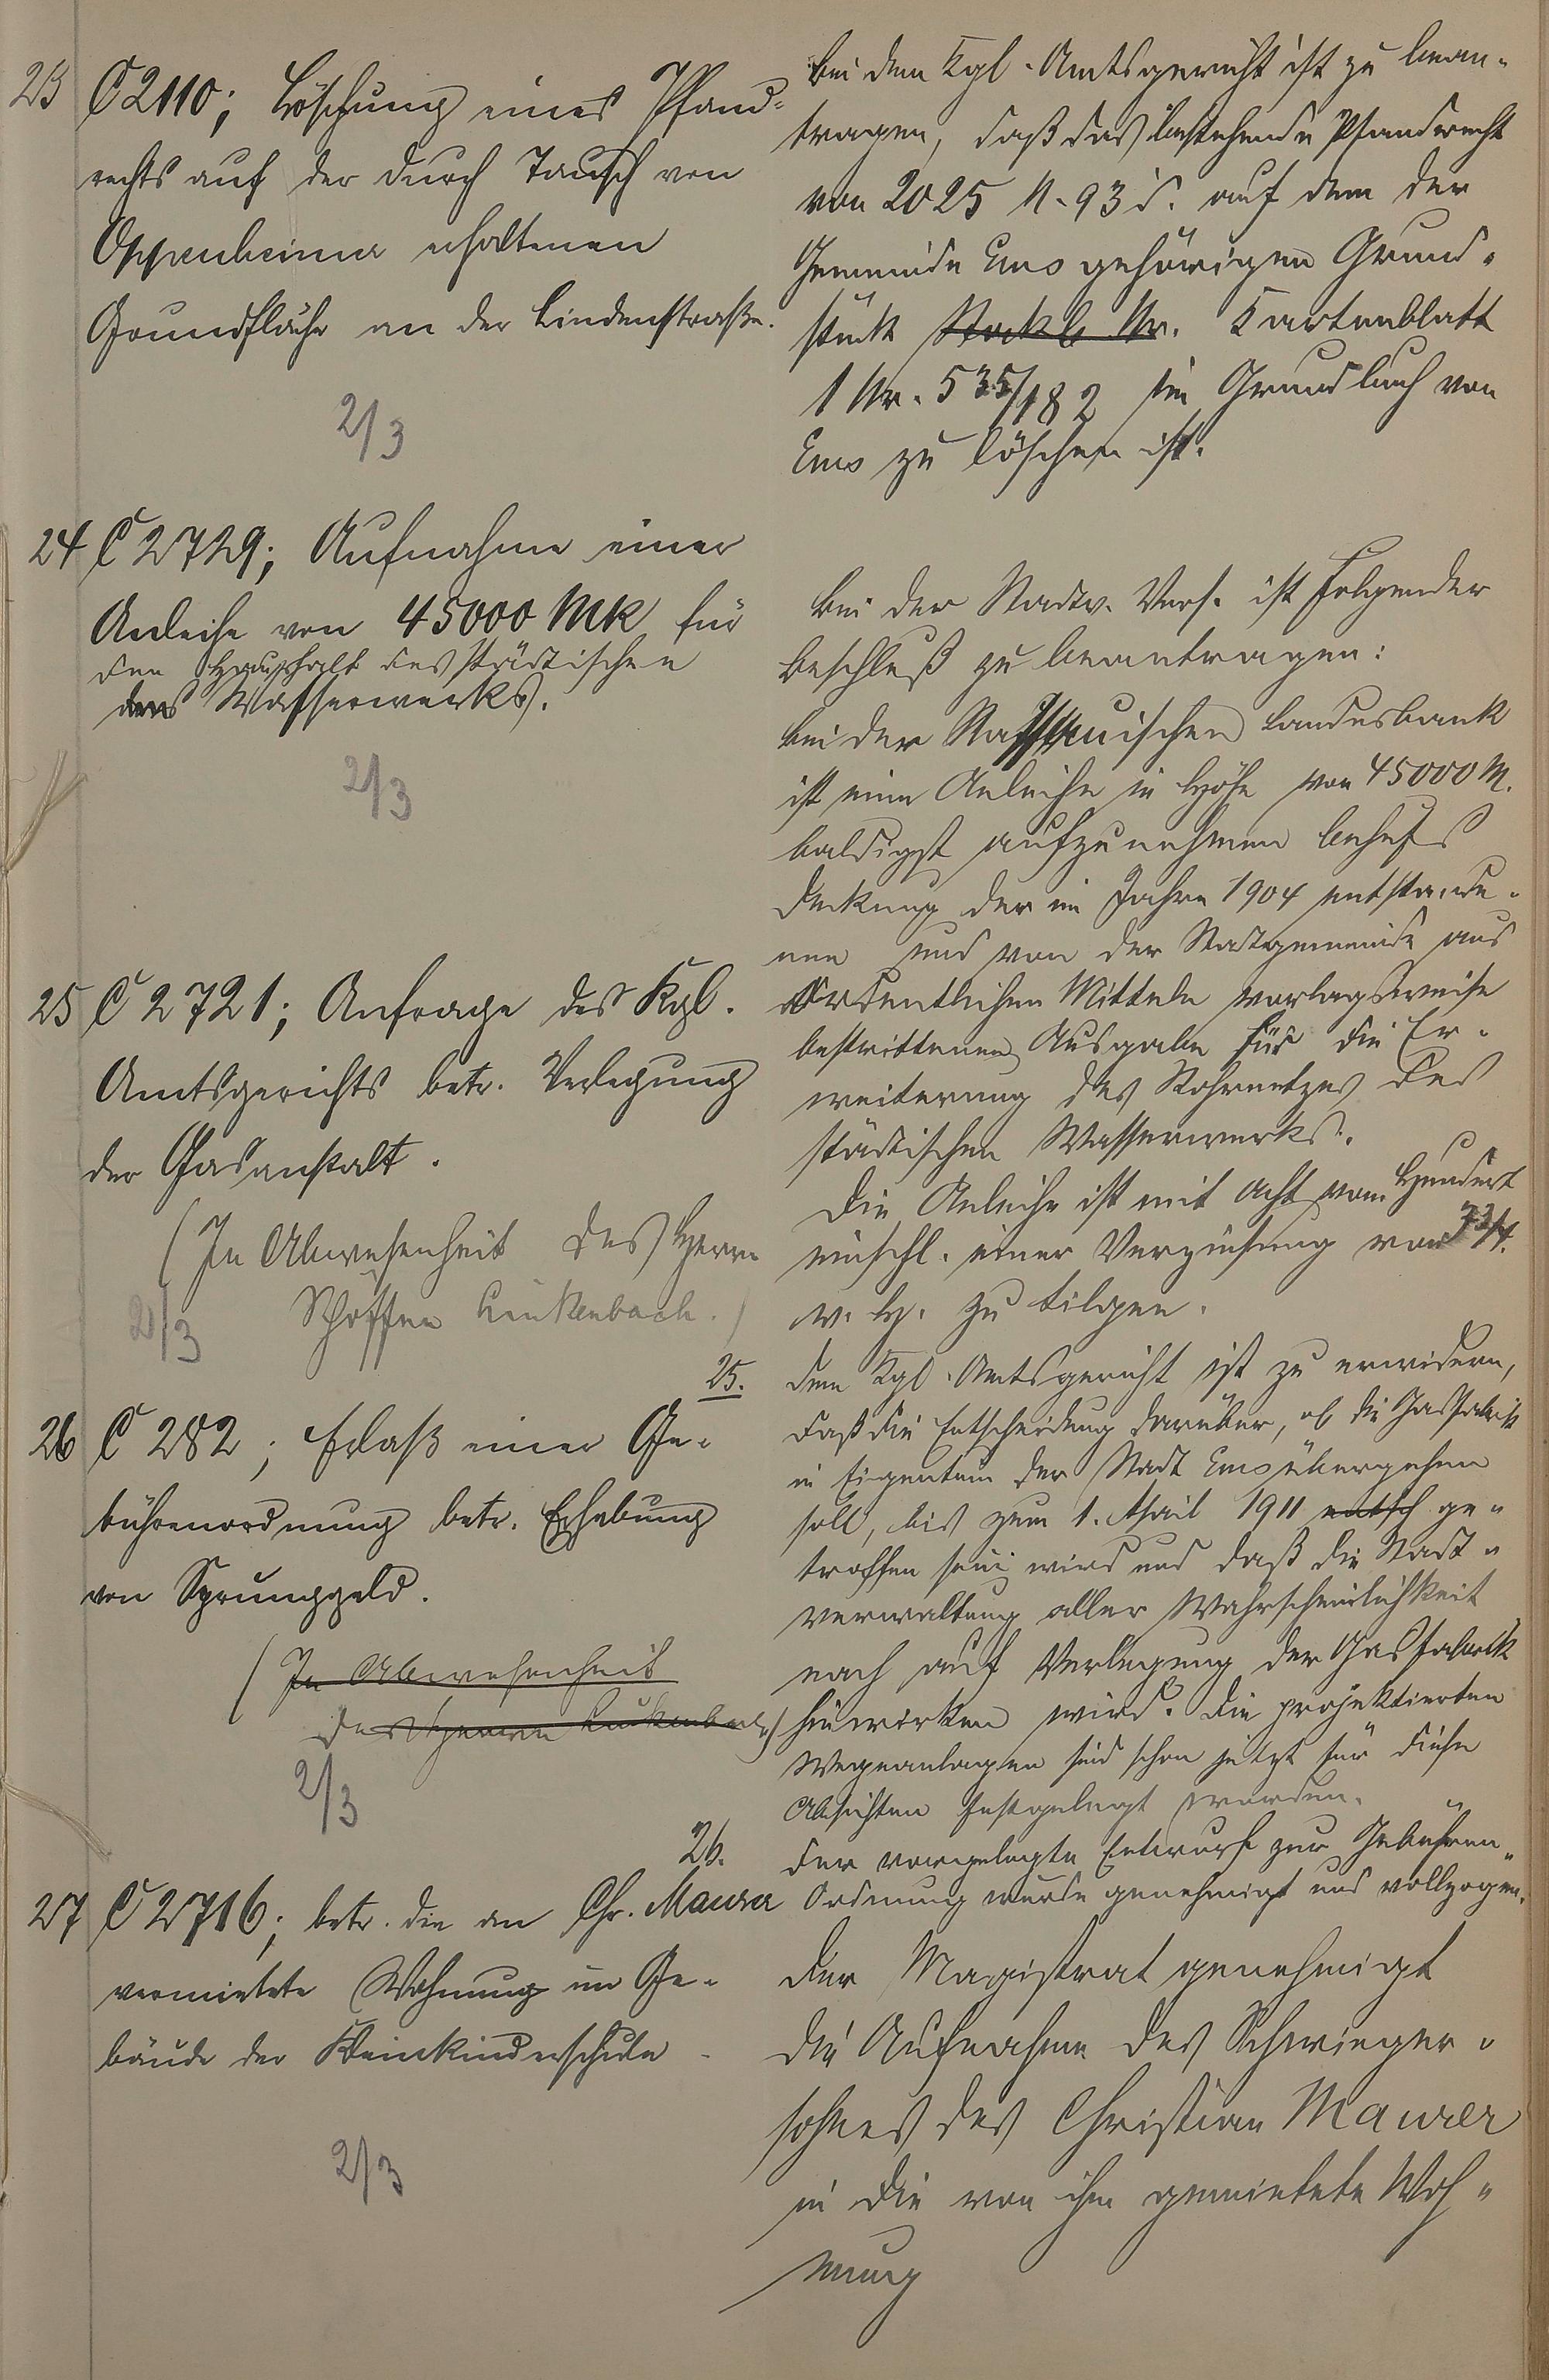 23 C 2110; Löschung eines Pfand-
rechts auf der durch Tausch von
Oppenheimer erhaltenen
Grundfläche an der Lindenstraße.
2/3
Bei dem Kgl. Amtsgericht ist zu bean-
tragen, daß das bestehende Pfandrecht
von 2025 M. 93 d. auf dem der
Gemeinde Ems gehörigen Grund-
stück Stockb. Nr. Kartenblatt
1 Nr. 535/182 im Grundbuch von
Ems zu löschen ist.
24 C 2729; Aufnahme einer
Anleihe von 45000 Mk für
den Haushalt des städtischen
des Wasserwerks.
2/3
Bei der Stadtv. Vers. ist folgender
Beschluß zu beantragen:
Bei der Nassauischen Landesbank
ist eine Anleihe in Höhe von 45000 M.
baldigst aufzunehmen behufs
Deckung der im Jahre 1904 entstande-
nen und von der Stadtgemeinde aus
ordentlichen Mitteln vorlagsweise
bestrittenen Ausgabe für die Er-
weiterung des Rohrnetzes des
städtischen Wasserwerks.
Die Anleihe ist mit acht vom Hundert
einschl. einer Verzinsung von 3 3/4
v. H. zu tilgen.
25 C 2721; Anfrage des Kgl.
Amtsgerichts betr. Verlegung
der Gasanstalt.
(In Abwesenheit des Herrn
Schöffen Linkenbach.)
2/3
25. Dem Kgl. Amtsgericht ist zu erwidern,
daß die Entscheidung darüber, ob die Gasfabrik
in Eigentum der Stadt Ems übergehen
soll, bis zum 1. April 1911 entsch ge-
troffen sein wird und daß die Stadt-
verwaltung aller Wahrscheinlichkeit
nach auf Verlegung der Gasfabrik
hinwirken wird. Die projektierten
Wegeanlagen sind schon jetzt für diese
Absichten festgelegt worden.
26 C 282; Erlaß einer Ge-
bührenordnung betr. Erhebung
von Sprunggeld.
(In Abwesenheit
des Herrn Linkenbach)
2/3
26. Der vorgelegte Entwurf zur Gebühren-
Ordnung wurde genehmigt und vollzogen.
27 C 2716; betr. die an Chr. Maurer
vermietete Wohnung im Ge-
bäude der Kleinkinderschule
2/3
Der Magistrat genehmigt
die Aufnahme des Schwieger-
sohnes des Christian Maurer
in die von ihm gemietete Woh-
nung